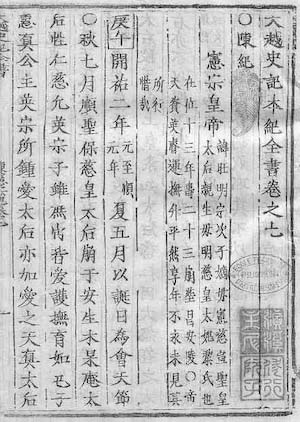 大越史記本紀全書卷之七
○陳紀
憲宗皇帝
諱旺明宗次子嫡母憲慈宣聖皇
太后親生母明慈皇太妃黎氏也
在位十三年壽二十三崩葬安陵○帝
天資英睿運升平然享年不永未見其
所行
惜哉
庚午開祐二年 元至順元年 夏五月以誕日為會天節
○秋七月順聖保慈皇太后崩于安生木杲庵太
后性仁慈允英宗子雖出皆愛護撫育如己子
惠真公主英宗所鍾愛太后亦加愛之天真太后